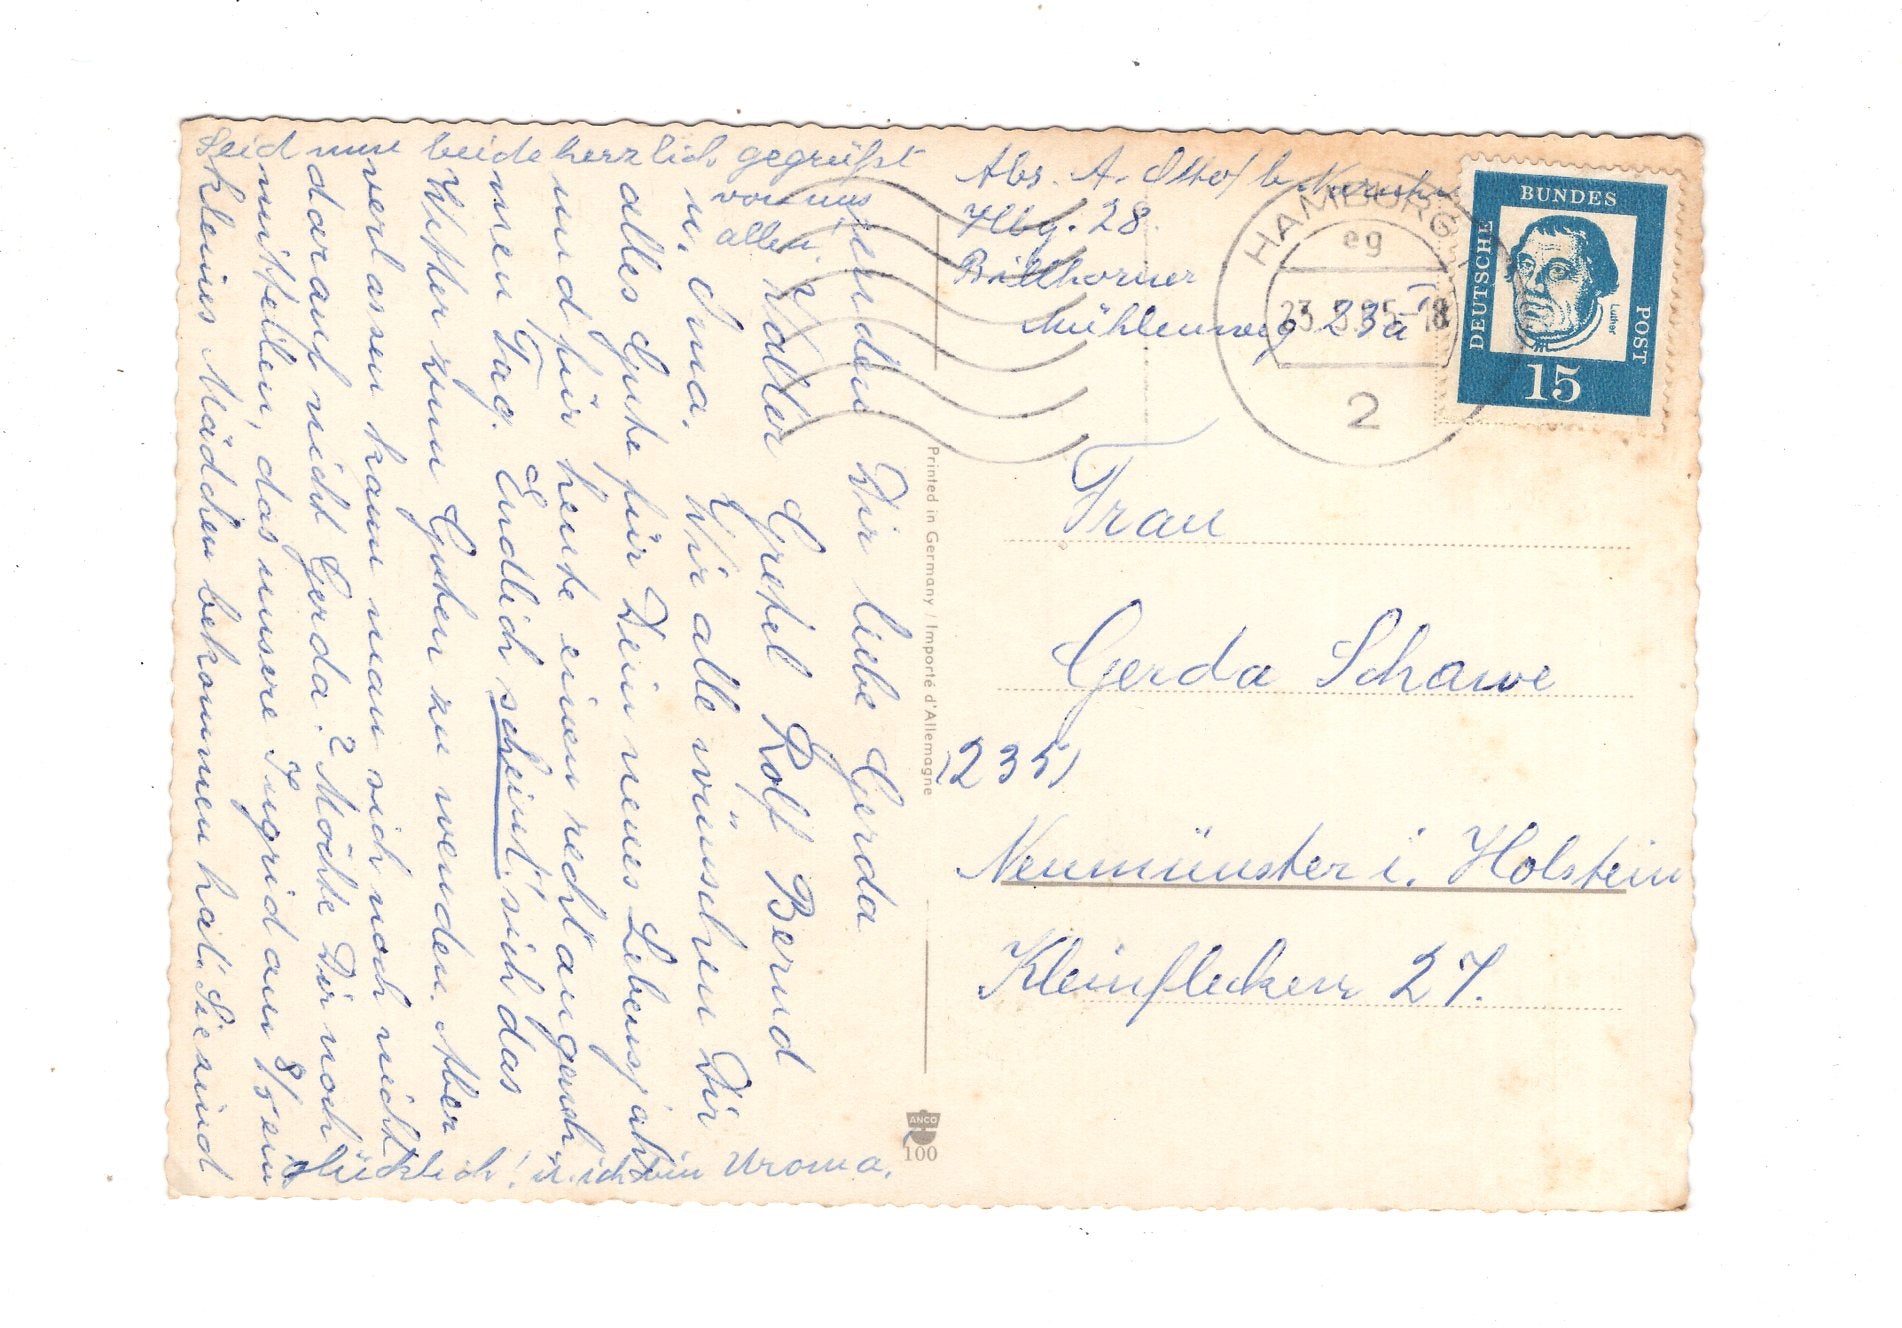 senden Dir liebe Gerda
Walter Gretel Rolf Bernd
u. Oma. Wir alle wünschen Dir
alles Gute für Dein neues Lebensjahr
und für heute einen recht angeneh-
men Tag. Endlich scheint sich das
Wetter zum Guten zu wenden. Aber
verlassen kann man sich noch nicht
darauf nicht Gerda? Möchte Dir noch
mitteilen, das unsere Ingrid am 8/5 ein
kleines Mädchen bekommen hat. Sie sind
glücklich! u. ich bin Uroma.
Seid nun beide herzlich gegrüßt
von uns
allen!
Abs. A. Otto / b.
Hbg. 28
Billhorner
Mühlenweg 23a
HAMBURG
eg
23.5.65-18
2
DEUTSCHE
BUNDES
POST
Luther
15
Frau
Gerda Schawe
(235)
Neumünster i. Holstein
Kleinflecken 27.
Printed in Germany / Importé d'Allemagne
ANCO
100